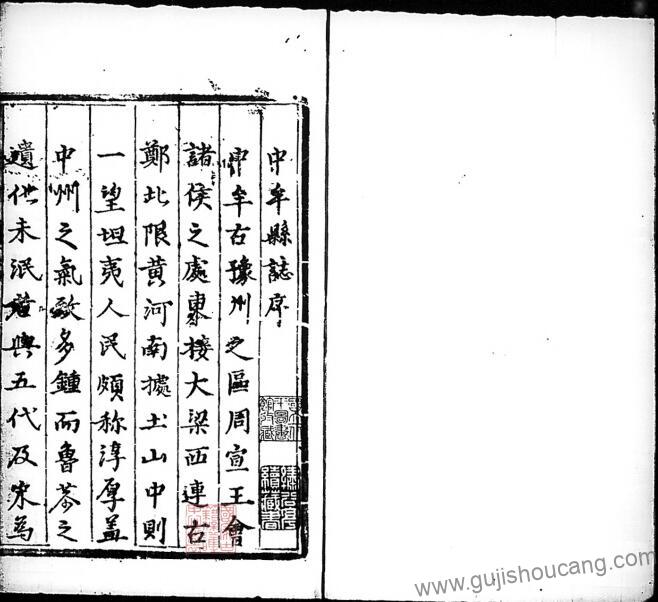 中牟縣誌序
中牟古豫州之區周宣王會
諸侯之處東接大梁西連古
鄭北限黃河南據土山中則
一望坦夷人民頗称淳厚盖
中州之氣欿多鍾而魯恭之
遺化未泯歟與五代及宋為
www.gujishoucang.com